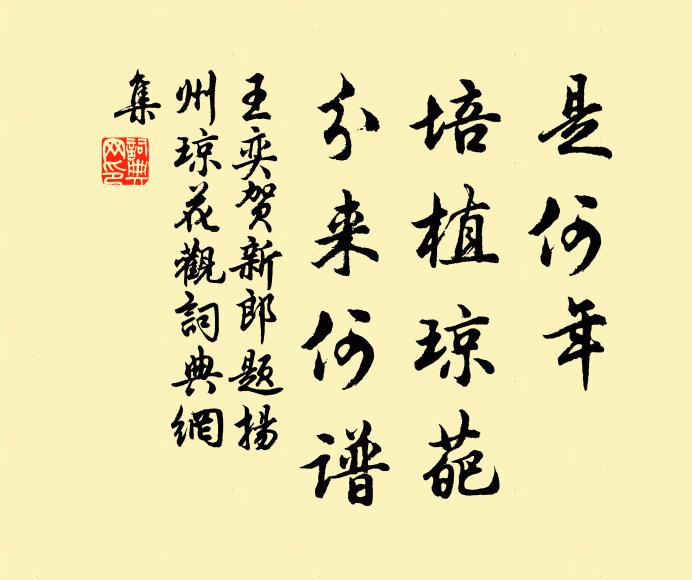 是何年
培植琼葩
分来何谱
王奕贺新郎题揚
州琼花觀詞典網
集
詞典網印